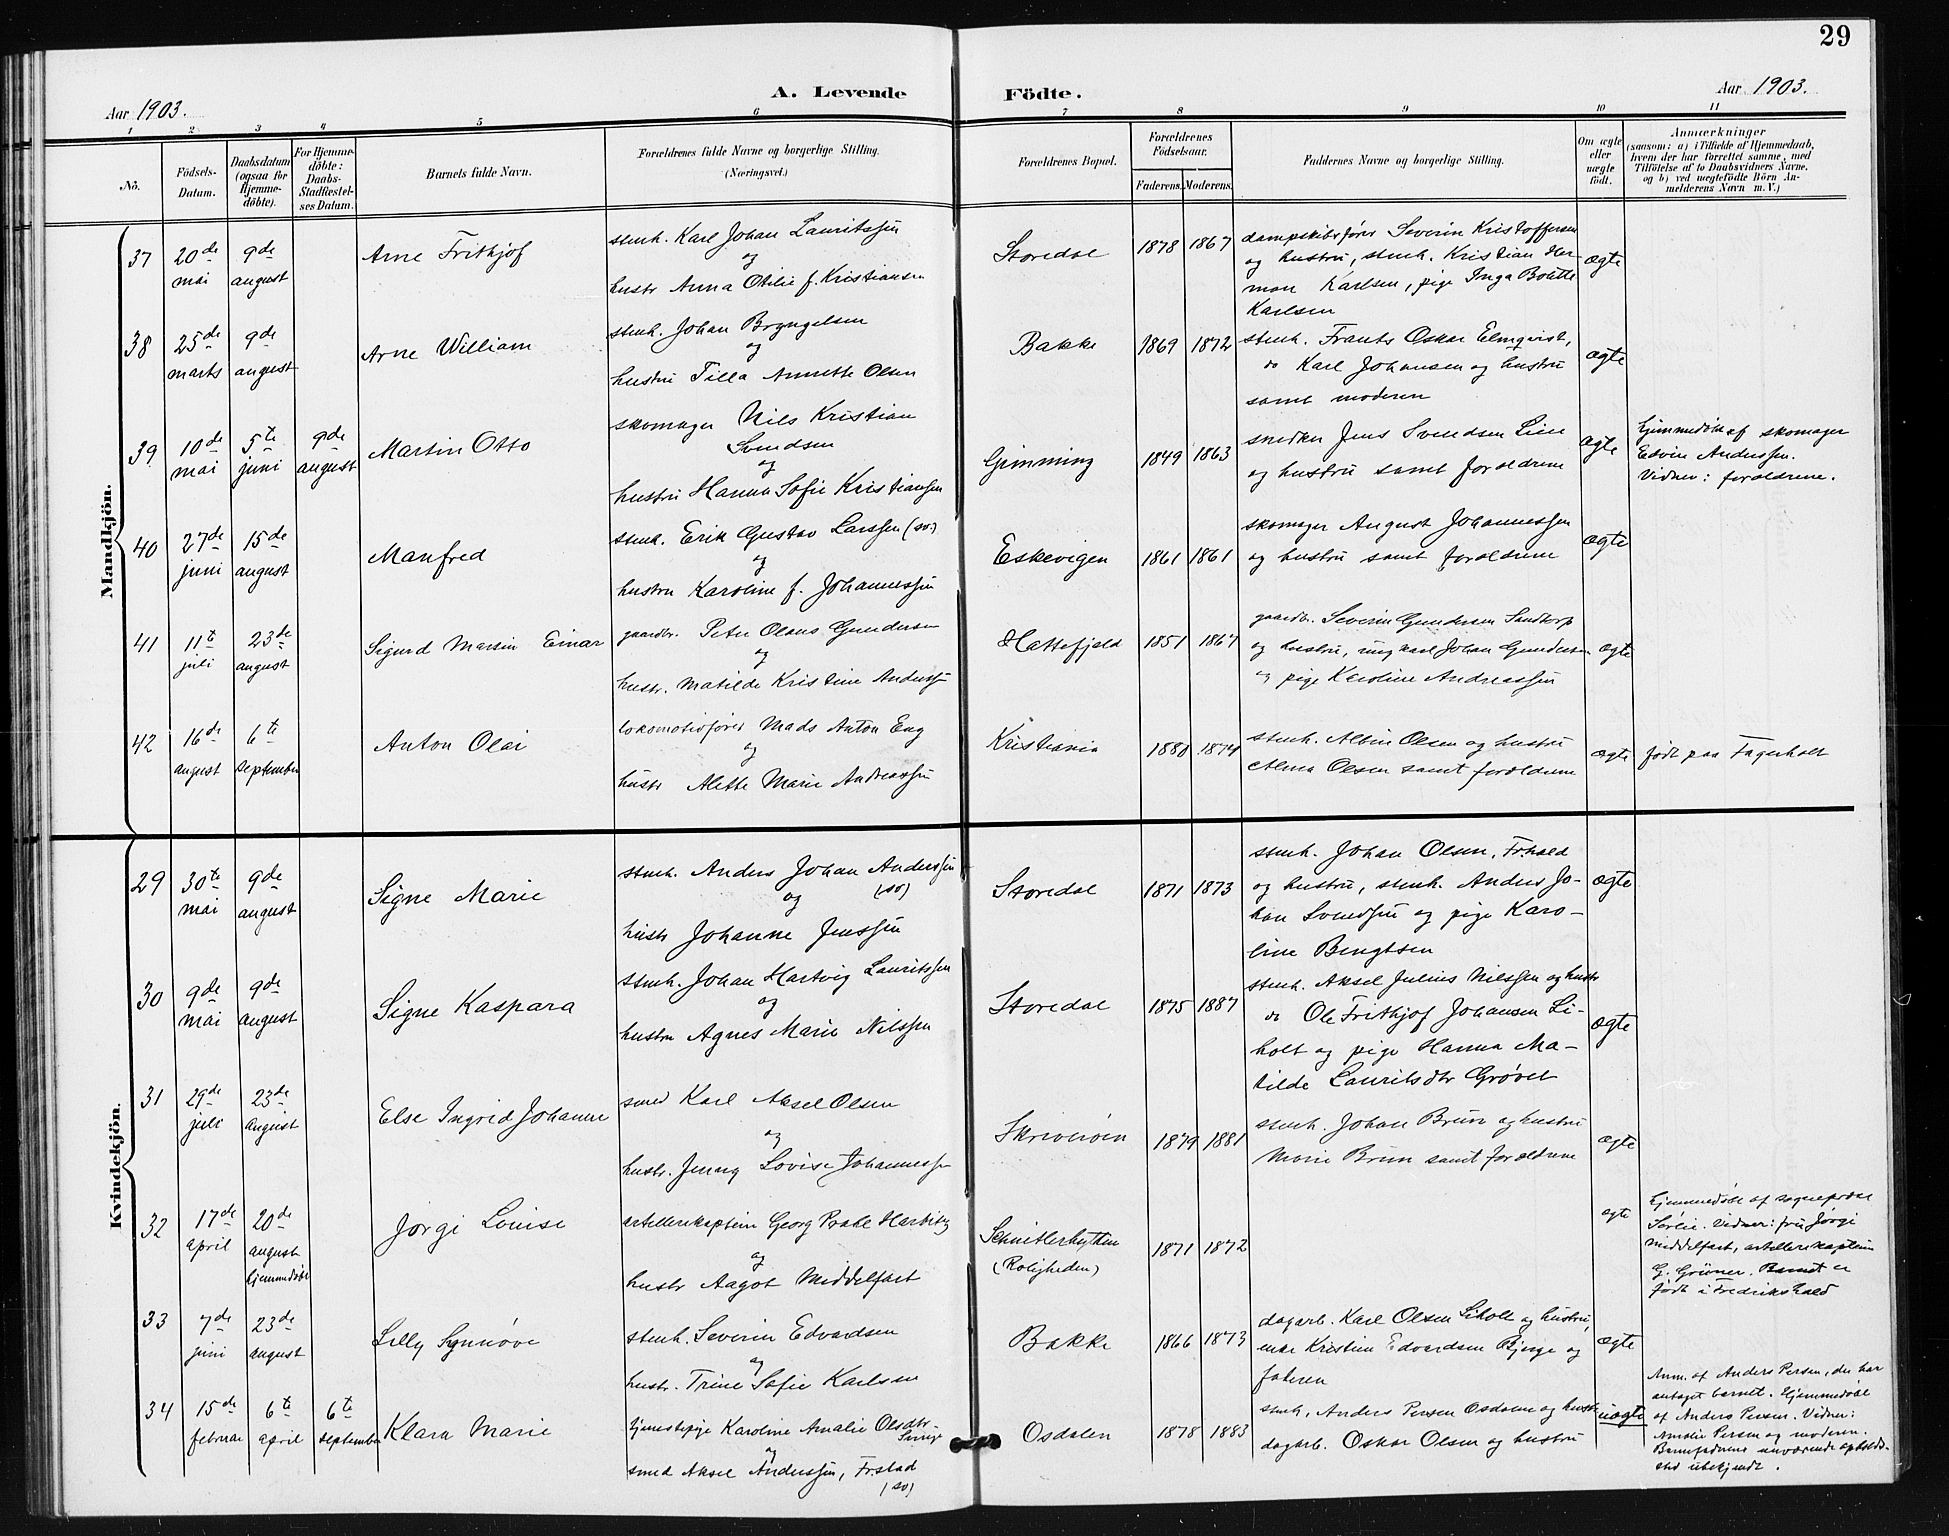 29
Aar 1903. A. Levende Födte. Aar 1903.
1 2 3 4 5 6 7 8 9 10 11
No.
Födsels-
Datum.
Daabsdatum
(ogsaa for
Hjemme-
döbte).
For Hjemme-
döbte:
Daabs-
Stadfæstel-
ses Datum.
Barnets fulde Navn.
Forældrenes fulde Navne og borgerlige Stilling.
(Næringsvei.)
Forældrenes Bopæl.
Forældrenes
Födselsaar.
Faderens. Moderens.
Faddernes Navne og borgerlige Stilling.
Om ægte
eller
uægte
födt.
Anmærkninger
(saasom: a) i Tilfælde af Hjemmedaab,
hvem der har forrettet samme, med
Tilföielse af to Daabsvidners Navne,
og b) ved uegtefödte Börn An-
melderens Navn m. V.)
Mandkjön.
37
20de
mai
9de
august
Arne Frithjof
stenh. Karl Johan Lauritssen
og
hustr Anna Otilie f. Kristiansen
Storedal
1878 1867
dampskibsfører Severin Kristoffersen
og hustru, stenh. Kristian Her-
man Karlsen, pige Inga Bolette
Karlsen
ægte
38
25de
marts
9de
august
Arne William
stenh. Johan Bryngelsen
og
hustru Tilla Annette Olsen
Bakke
1869 1872
stenh. Frants Oskar Elmqvist,
do Karl Johansen og hustru
samt moderen
ægte
39
10de
mai
5te
juni
9de
august
Martin Otto
skomager Nils Kristian
Svendsen
og
hustru Hanna Sofie Kristiansen
Gimming
1849 1863
snedker Jens Svendsen Lie
og hustru samt forældrene
ægte
hjemmedøbt af skomager
Edvin Anderssen.
Vidner: forældrene.
40
27de
juni
15de
august
Manfred
stenh. Erik Gustav Larssen (sv.)
og
hustru Karoline f. Johannessen
Eskevigen
1861 1861
skomager August Johannessen
og hustru samt forældrene
ægte
41
11te
juli
23de
august
Sigurd Martin Einar
gaardbr. Peter Olaus Gundersen
og
hustr. Matilde Kristine Anderssen
Hattefjeld
1851 1867
gaardbr. Severin Gundersen Sandtorp
og hustru, ungkarl Johan Gundersen
og pige Karoline Andreassen
ægte
42
16de
august
6te
september
Anton Olai
lokomotivfører Mads Anton Eng
og
hustr Alette Marie Andreassen
Kristiania
1880 1874
stenh. Albin Olsen og hustru
Alma Olsen samt forældrene
ægte
født paa Fagerholt
Kvindekjön.
29
30te
mai
9de
august
Signe Marie
stenh. Anders Johan Anderssen
(sv)
og
hustr Johanne Jenssen
Storedal
1871 1873
stenh. Johan Olsen, Fr.hald
og hustru, stenh. Anders Jo-
han Svendsen og pige Karo-
line Bengtsen
ægte
30
9de
mai
9de
august
Signe Kaspara
stenh. Johan Hartvig Lauritssen
og
hustru Agnes Marie Nilssen
Storedal
1875 1887
stenh. Aksel Julius Nilssen og hustr
do Ole Frithjof Johansen Li-
holt og pige Hanna Ma-
tilde Lauritsdtr Grøvet
ægte
31
29de
juli
23de
august
Else Ingrid Johanne
smed Karl Aksel Olsen
og
hustr. Jenny Lovise Johannessen
Skriverøen
1879 1881
stenh. Johan Brun og hustru
Marie Brun samt forældrene
ægte
32
17de
april
20de
august
hjemmedøbt
Jørgi Louise
artellerikaptein Georg Prahl Harbitz
og
hustr Aagot Middelfart
Schnitlerhytten
(Roligheden)
1871 1872
ægte
hjemmedøbt af sogneprest
Sørlie. Vidner: fru Jørgi
Middelfart, artellerikaptein
G. Grüner. Barnet er
født i Fredrikshald
33
7de
juni
23de
august
Lilly Synnøve
stenh. Severin Edvardsen
og
hustr. Trine Sofie Karlsen
Bakke
1866 1873
dagarb. Karl Olsen Liholt og hustru,
enke Kristine Edvardsen Bjerge og
faderen
ægte
34
15de
februar
6te
april
6te
september
Klara Marie
tjenestepige Karoline Amalie Olsdtr.
Sverige
og
smed Aksel Anderssen, Fr.stad
(sv)
Osdalen
1878 1883
stenh. Anders Persen Osdalen og hustr
dagarb. Oskar Olsen og hustru
uægte
Anm. af Anders Persen, der har
antaget barnet. Hjemmedøbt
af Anders Persen. Vidner:
Amalie Persen og moderen.
Barnefaderens nuværende opholds-
sted ubekjendt.